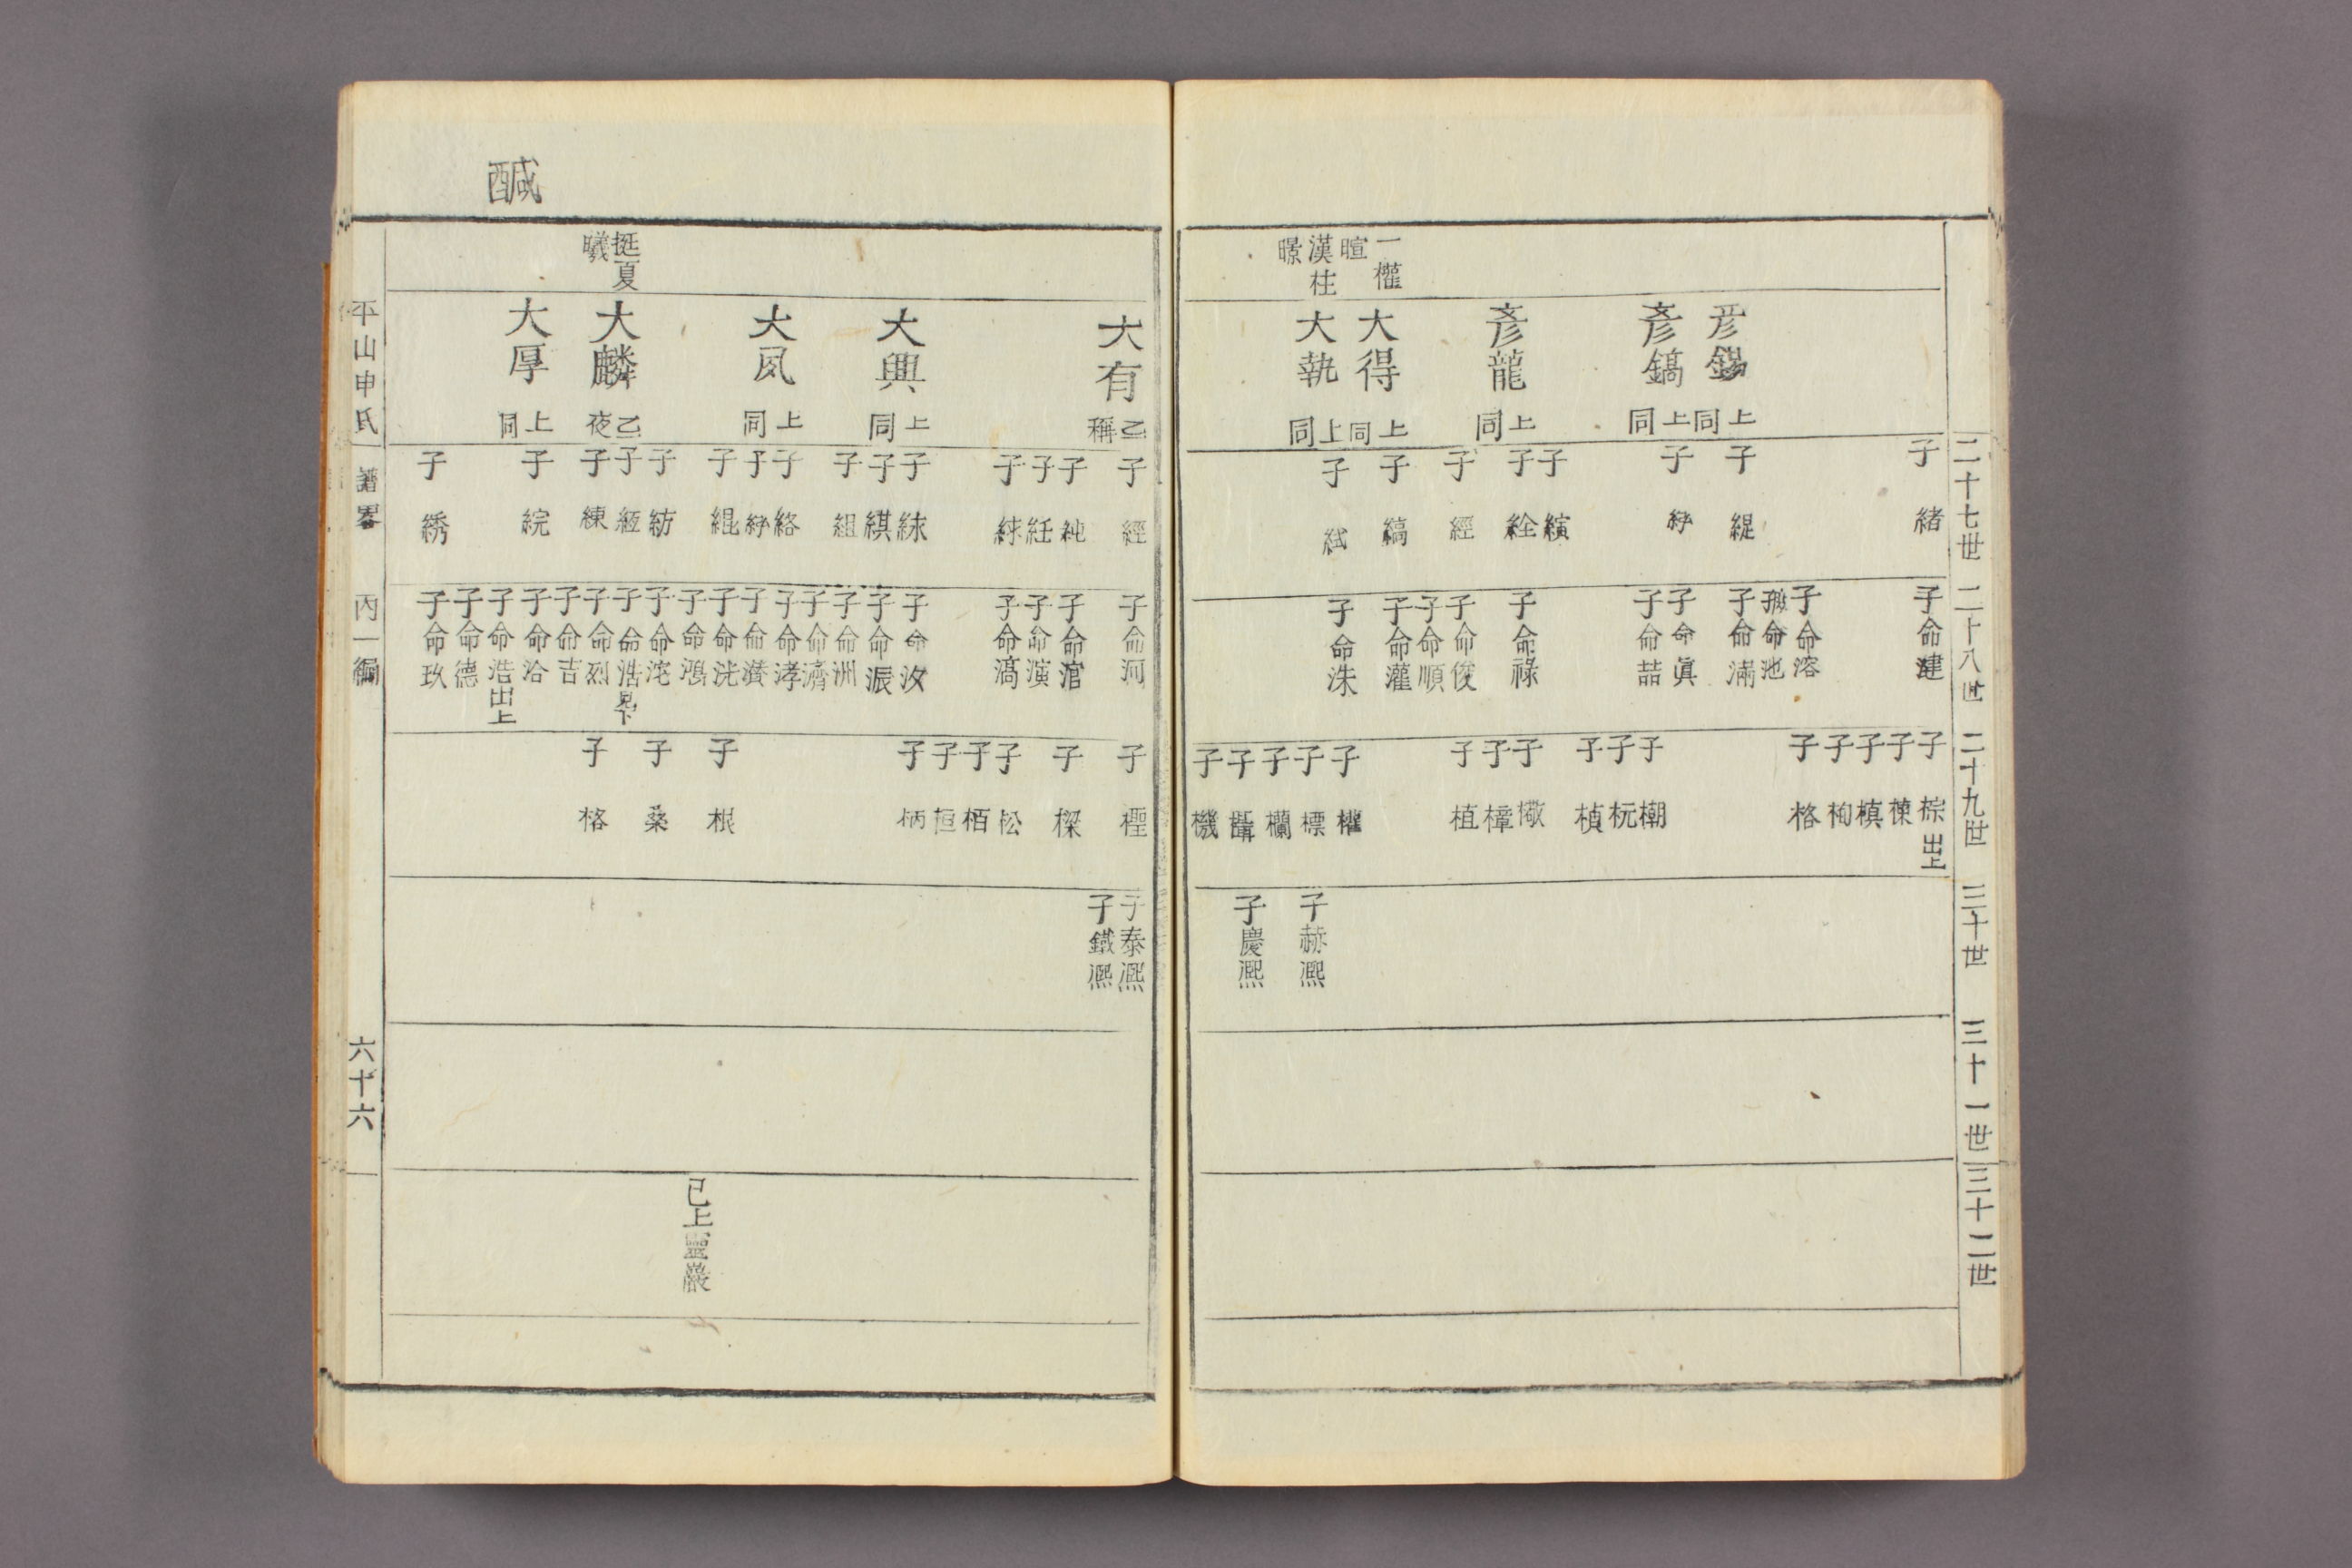 二十七世
二十八世
二十九世
三十世
三十一世
三十二世
一權
暄
漢柱
暻
彦錫 上同
彥鎬 上同
彥龍 上同
大得 上同
大執 上同
子 緖
子 緹
子 綍
子 縯
子 絟
子 經
子 縞
子 絨
子命建
子命溶
子命池
子命滿
子命眞
子命喆
子命祿
子命俊
子命順
子命灌
子命洙
子 棕 出上
子 楝
子 槙
子 栒
子 格
子 樃
子 杬
子 楨
子 橄
子 樟
子 植
子 權
子 標
子 欄
子 機
子赫熙
子慶熙
挺夏
曦
大有 乙稱
大興 上同
大凨 上同
大麟 乙夜
大厚 上同
子 經
子 純
子 紝
子 絿
子 絉
子 綨
子 組
子 絡
子 綍
子 緄
子 紡
子 緪
子 練
子 綄
子 綉
子命河
子命涫
子命演
子命滈
子命汝
子命浱
子命洲
子命濟
子命涍
子命濽
子命洸
子命鴻
子命沱
子命浩 見下
子命烈
子命吉
子命洽
子命浩 出上
子命德
子命玖
子 檉
子 樑
子 松
子 栢
子 桓
子 柄
子 根
子 桑
子 格
子泰熙
子鐵熙
已上靈巖
醎
平山申氏 譜畧 丙一編 六十六